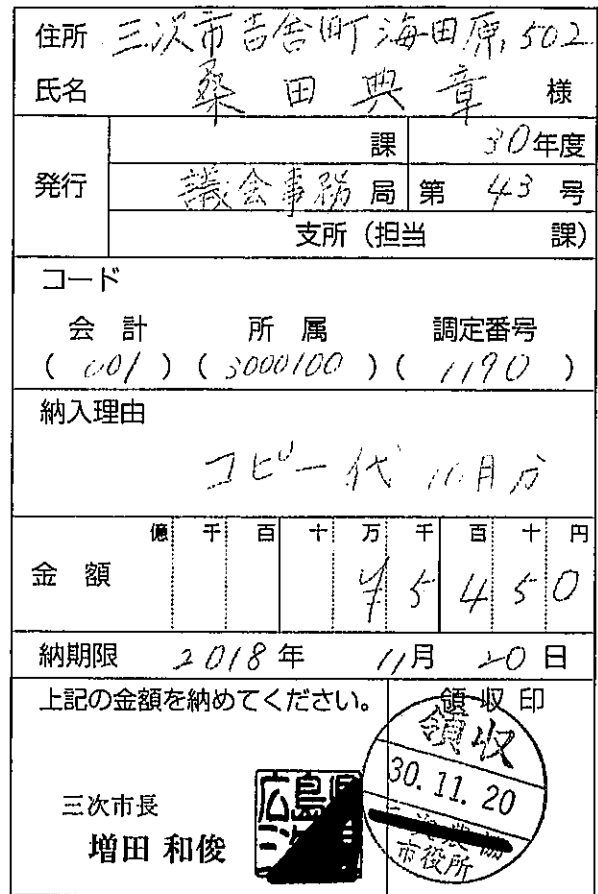 住所 三次市吉舎町海田原502
氏名 桑田典章 様
発行 課 30年度
議会事務局 第 43 号
支所(担当 課)
コード
会計 所属 調定番号
(001) (5000100) (1190)
納入理由
コピー代 11月分
億 千 百 十 万 千 百 十 円
金額 ¥5450
納期限 2018年 11月 20日
上記の金額を納めてください。 領収印
領収
30.11.20
市役所
広島県
三次市長
増田 和俊